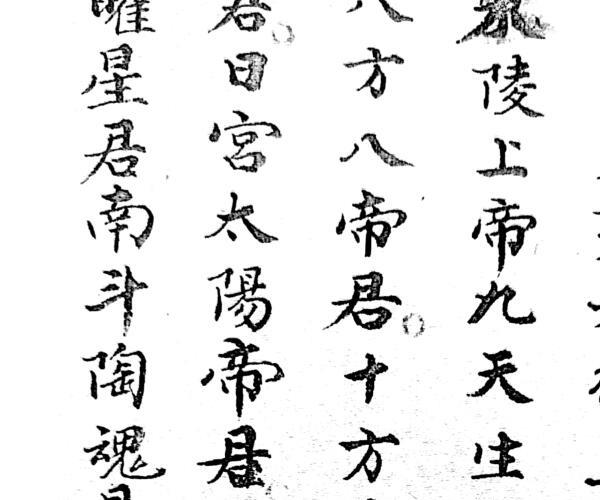 陵上帝九天生
八方八帝君十方
君日宮太陽帝君
曜星君南斗陶魂